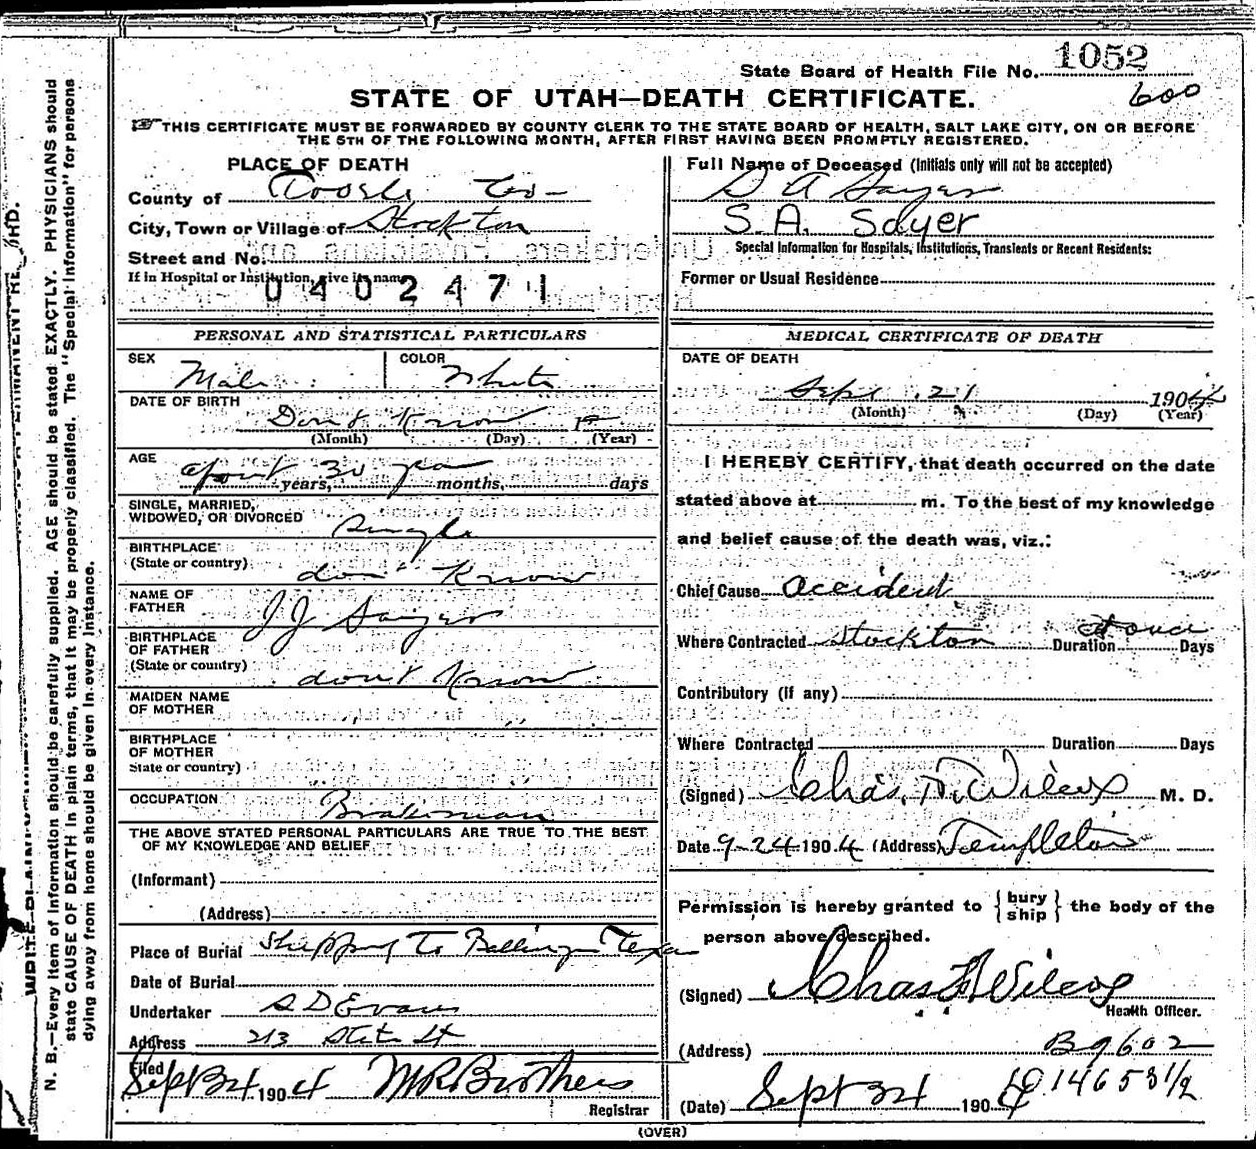 State Board of Health File No. 1052
600
STATE OF UTAH—DEATH CERTIFICATE.
THIS CERTIFICATE MUST BE FORWARDED BY COUNTY CLERK TO THE STATE BOARD OF HEALTH, SALT LAKE CITY, ON OR BEFORE
THE 5TH OF THE FOLLOWING MONTH, AFTER FIRST HAVING BEEN PROMPTLY REGISTERED.
N. B.—Every item of information should be carefully supplied. AGE should be stated EXACTLY. PHYSICIANS should
state CAUSE OF DEATH in plain terms, that it may be properly classified. The "Special Information" for persons
dying away from home should be given in every instance.
PLACE OF DEATH
County of Tooele Co
City, Town or Village of Stockton
Street and No.
If in Hospital or Institution, give its name
0402471
Full Name of Deceased (Initials only will not be accepted)
S A Sayer
S.A. Sayer
Special Information for Hospitals, Institutions, Transients or Recent Residents:
Former or Usual Residence
PERSONAL AND STATISTICAL PARTICULARS
SEX Male
COLOR White
DATE OF BIRTH
Dont Know 1
(Month) (Day) (Year)
AGE
about 30 years
years, months, days
SINGLE, MARRIED,
WIDOWED, OR DIVORCED Single
BIRTHPLACE
(State or country) dont Know
NAME OF
FATHER J J Sayer
BIRTHPLACE
OF FATHER
(State or country) dont Know
MAIDEN NAME
OF MOTHER
BIRTHPLACE
OF MOTHER
State or country)
OCCUPATION Brakeman
THE ABOVE STATED PERSONAL PARTICULARS ARE TRUE TO THE BEST
OF MY KNOWLEDGE AND BELIEF
(Informant)
(Address)
Place of Burial Shipping To Ballinger Texas
Date of Burial
Undertaker S D Evans
Address 213 State St
Filed
Sept 24 1904 M R Brothers
Registrar
MEDICAL CERTIFICATE OF DEATH
DATE OF DEATH
Sept 21 1904
(Month) (Day) (Year)
I HEREBY CERTIFY, that death occurred on the date
stated above at m. To the best of my knowledge
and belief cause of the death was, viz.:
Chief Cause accident
Where Contracted Stockton Duration at once Days
Contributory (if any)
Where Contracted Duration Days
(Signed) Chas. F. Wilcox M. D.
Date 9-24 1904 (Address) Templeton
Permission is hereby granted to {bury ship} the body of the
person above described.
(Signed) Chas F Wilcox
Health Officer.
(Address) B9602
(Date) Sept 24 1904
146531/2
(OVER)